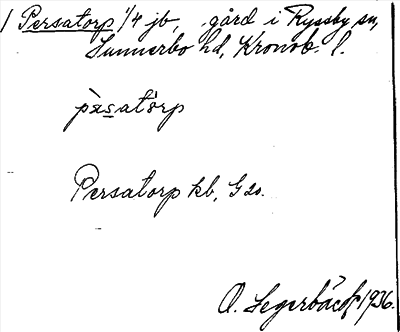 / Persatorp 1/4 jb, gård i Ryssby sn,
Sunnerbo hd, Kronob. l.
pæ̀satórp
Persatorp kb, G 20.
O. Segerbäck 1936.